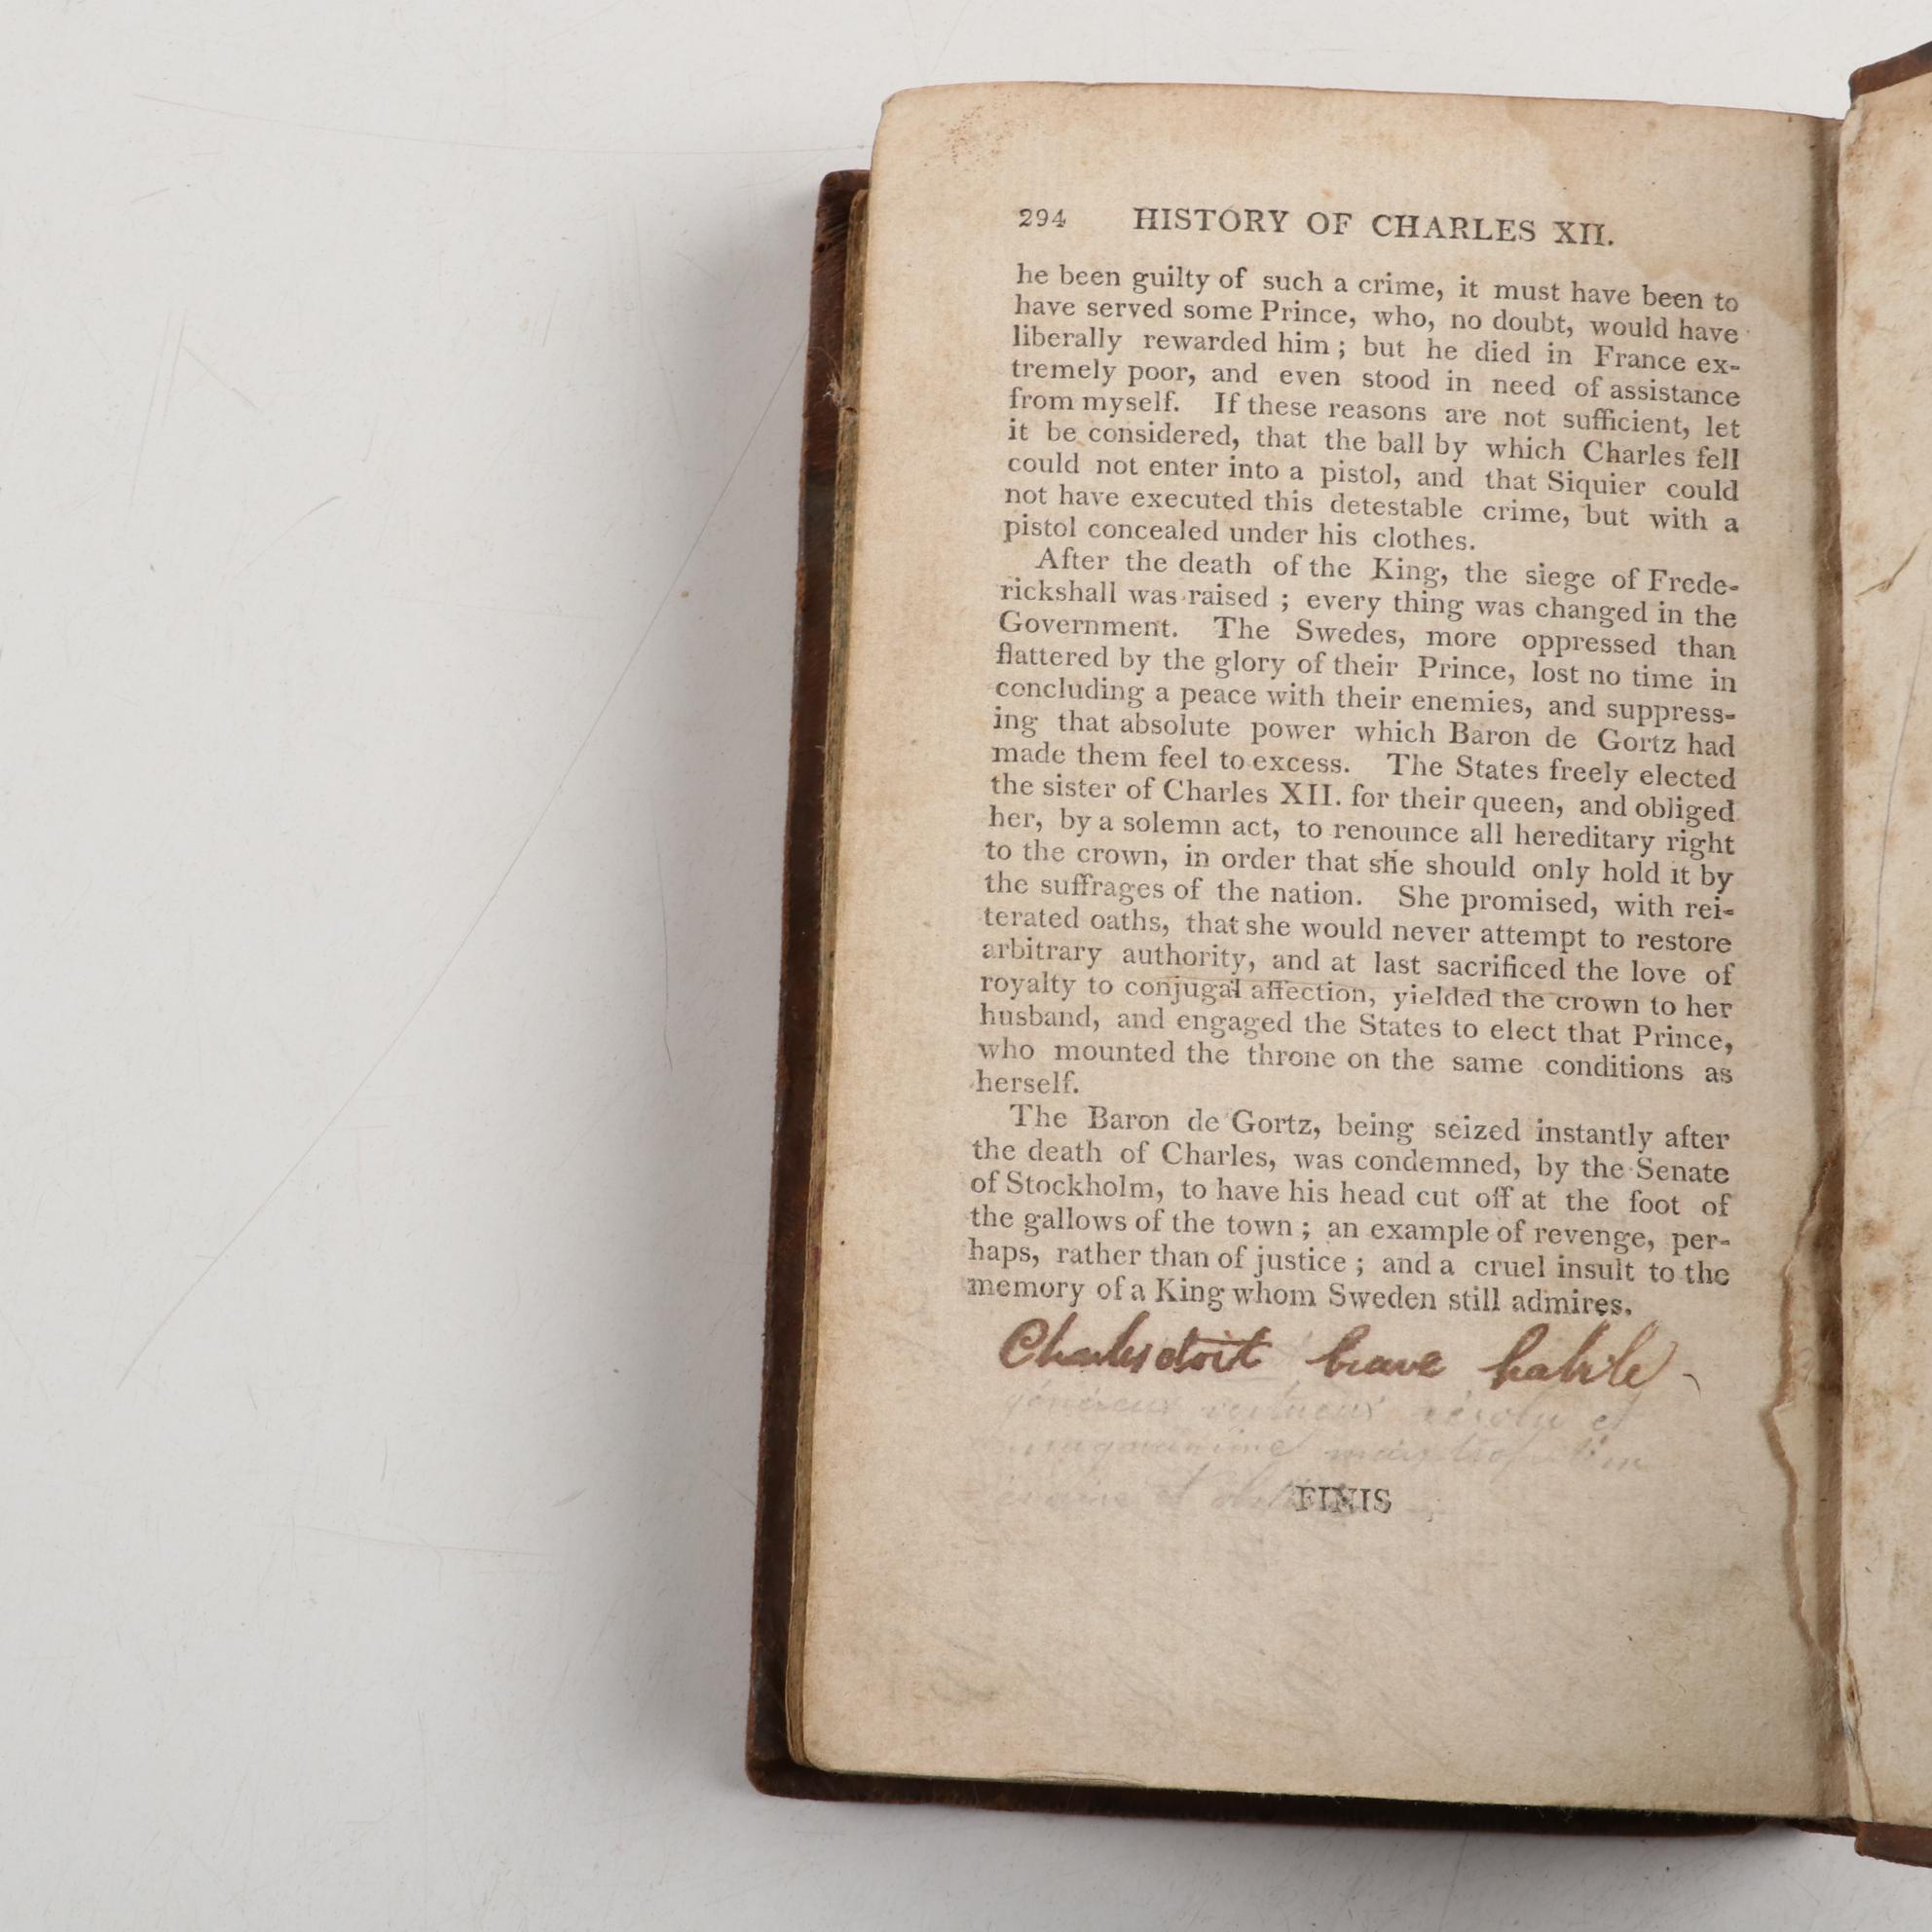 294 HISTORY OF CHARLES XII.
he been guilty of such a crime, it must have been to
have served some Prince, who, no doubt, would have
liberally rewarded him ; but he died in France ex-
tremely poor, and even stood in need of assistance
from myself. If these reasons are not sufficient, let
it be considered, that the ball by which Charles fell
could not enter into a pistol, and that Siquier could
not have executed this detestable crime, but with a
pistol concealed under his clothes.
After the death of the King, the siege of Frede-
rickshall was raised ; every thing was changed in the
Government. The Swedes, more oppressed than
flattered by the glory of their Prince, lost no time in
concluding a peace with their enemies, and suppress-
ing that absolute power which Baron de Gortz had
made them feel to excess. The States freely elected
the sister of Charles XII. for their queen, and obliged
her, by a solemn act, to renounce all hereditary right
to the crown, in order that she should only hold it by
the suffrages of the nation. She promised, with rei-
terated oaths, that she would never attempt to restore
arbitrary authority, and at last sacrificed the love of
royalty to conjugal affection, yielded the crown to her
husband, and engaged the States to elect that Prince,
who mounted the throne on the same conditions as
herself.
The Baron de Gortz, being seized instantly after
the death of Charles, was condemned, by the Senate
of Stockholm, to have his head cut off at the foot of
the gallows of the town ; an example of revenge, per-
haps, rather than of justice ; and a cruel insult to the
memory of a King whom Sweden still admires.
Charles étoit brave habile
généreux vertueux résolu et
magnanime mais trop
et
FINIS